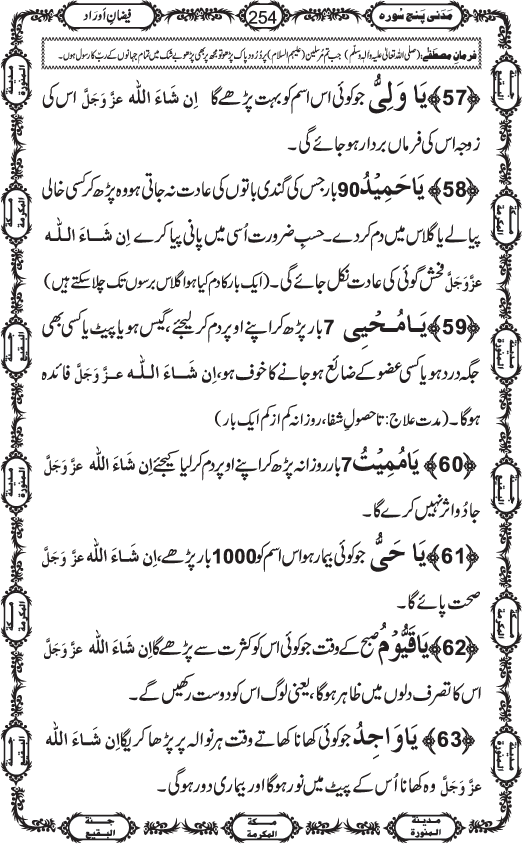 مَدَنی پنج سورہ
254
فیضانِ اَوراد
فرمانِ مصطفٰے: (صلی اللہ تعالیٰ علیہ واٰلہٖ وسلّم) جب تم مُرسَلین (علیہم السلام) پر دُرُودِ پاک پڑھو تو مجھ پر بھی پڑھو بے شک میں تمام جہانوں کے ربّ کا رسول ہوں۔
﴿57﴾ یَا وَلِیُّ جو کوئی اس اسم کو بہت پڑھے گا اِن شَاءَ اللہ عزَّ وَجَلَّ اس کی
زوجہ اس کی فرماں بردار ہو جائے گی۔
﴿58﴾ یَا حَمِیْدُ 90 بار جس کی گندی باتوں کی عادت نہ جاتی ہو وہ پڑھ کر کسی خالی
پیالے یا گلاس میں دم کر دے۔ حسبِ ضرورت اُسی میں پانی پیا کرے اِن شَاءَ اللہ
عزَّ وَجَلَّ فحش گوئی کی عادت نکل جائے گی۔ (ایک بار کا دم کیا ہوا گلاس برسوں تک چلا سکتے ہیں)
﴿59﴾ یَا مُحْیِی 7 بار پڑھ کر اپنے اوپر دم کر لیجئے، گیس ہو یا پیٹ یا کسی بھی
جگہ درد ہو یا کسی عضو کے ضائع ہو جانے کا خوف ہو، اِن شَاءَ اللہ عزَّ وَجَلَّ فائدہ
ہو گا۔ (مدت علاج: تا حصولِ شفا، روزانہ کم از کم ایک بار)
﴿60﴾ یَا مُمِیْتُ 7 بار روزانہ پڑھ کر اپنے اوپر دم کر لیا کیجئے اِن شَاءَ اللہ عزَّ وَجَلَّ
جادُو اثر نہیں کرے گا۔
﴿61﴾ یَا حَیُّ جو کوئی بیمار ہو اس اسم کو 1000 بار پڑھے، اِن شَاءَ اللہ عزَّ وَجَلَّ
صحت پائے گا۔
﴿62﴾ یَا قَیُّوْمُ صبح کے وقت جو کوئی اس کو کثرت سے پڑھے گا اِن شَاءَ اللہ عزَّ وَجَلَّ
اس کا تصرف دلوں میں ظاہر ہو گا، یعنی لوگ اس کو دوست رکھیں گے۔
﴿63﴾ یَا وَاجِدُ جو کوئی کھانا کھاتے وقت ہر نوالہ پر پڑھا کریگا اِن شَاءَ اللہ
عزَّ وَجَلَّ وہ کھانا اُس کے پیٹ میں نور ہو گا اور بیماری دور ہو گی۔
مدینة المنورة
مكة المكرمة
جنة البقيع